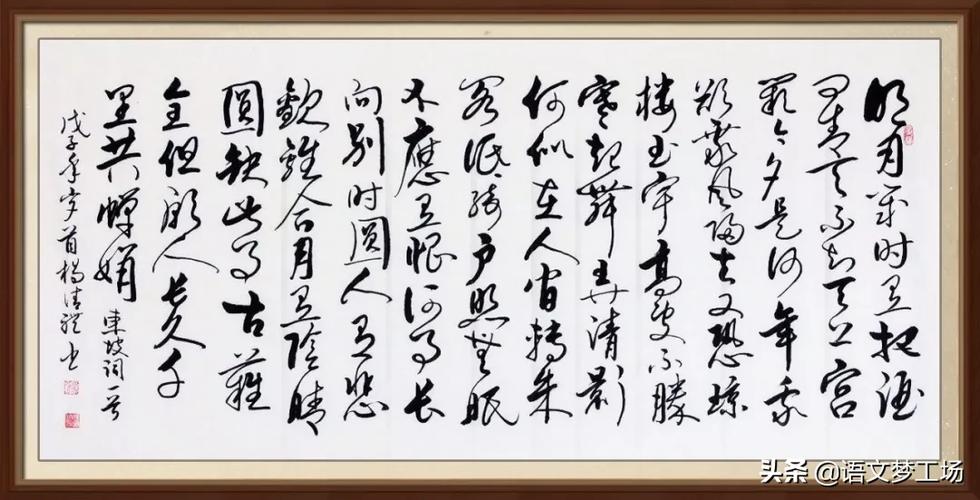 明月幾时有把酒
问青天不知天上宫
闕今夕是何年我
欲乘风歸去又恐琼
楼玉宇高處不勝
寒起舞弄清影
何似在人间轉朱
阁低绮户照無眠
不應有恨何事长
向别时圓人有悲
歡離合月有陰晴
圓缺此事古難
全但願人长久千
里共嬋娟 東坡词一首
戊子年岁首楊清禮书
头条 @语文梦工场